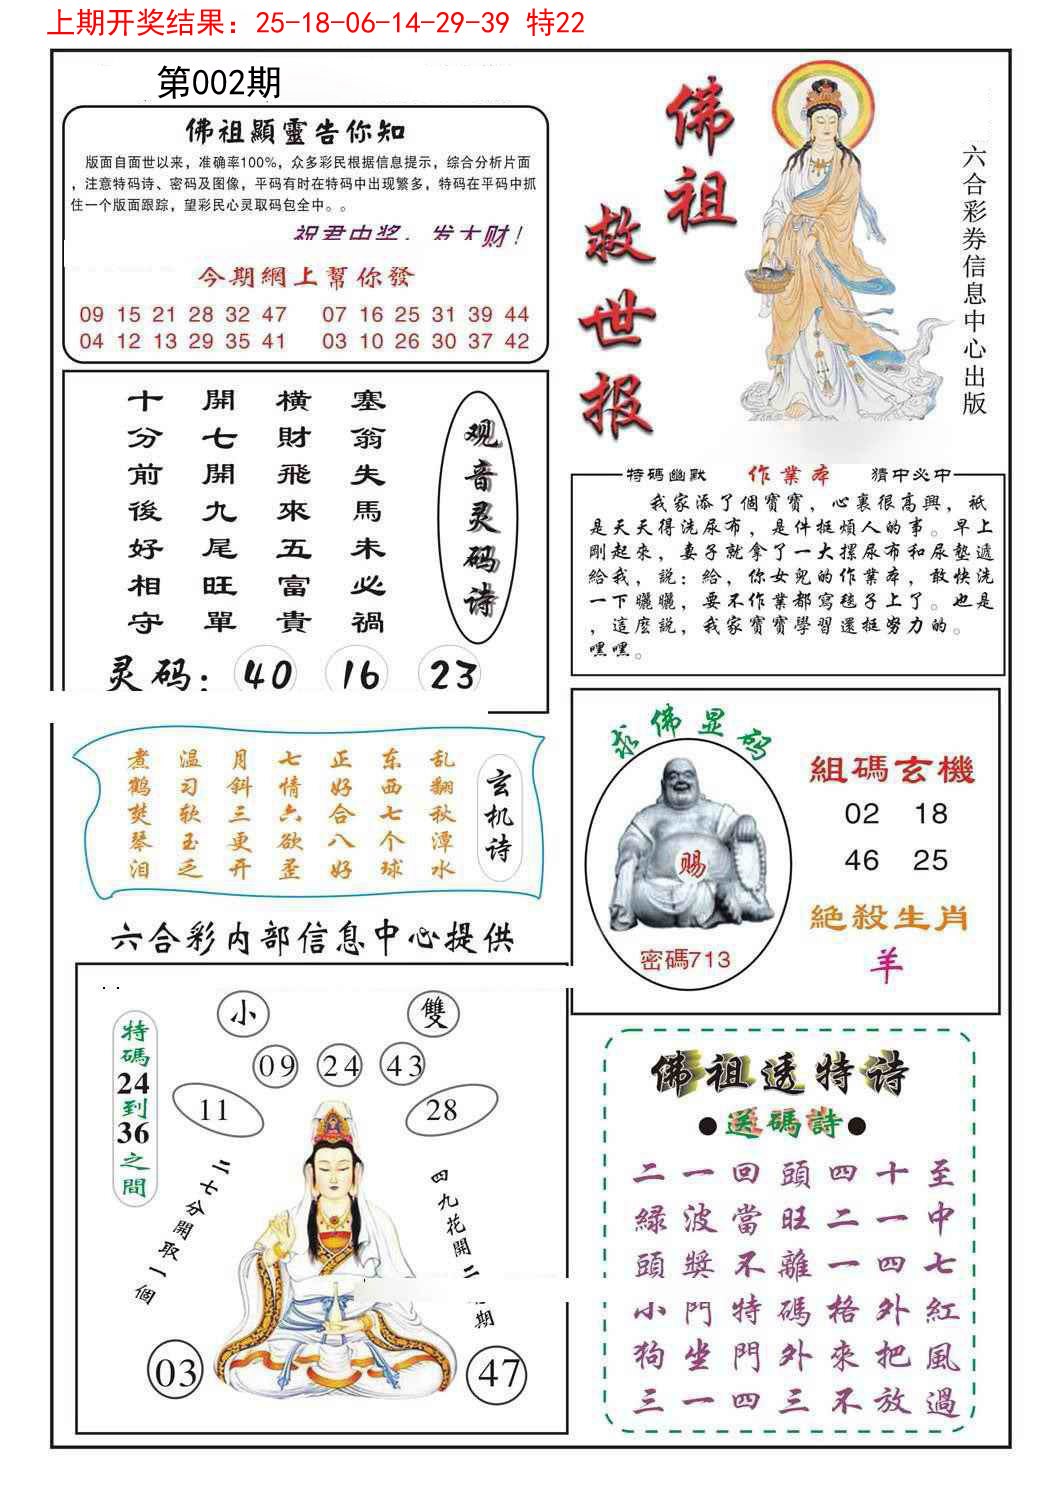 上期开奖结果：25-18-06-14-29-39 特22
第002期
佛祖顯靈告你知
版面自面世以来，准确率100%，众多彩民根据信息提示，综合分析片面
，注意特码诗、密码及图像，平码有时在特码中出现繁多，特码在平码中抓
住一个版面跟踪，望彩民心灵取码包全中。。
祝君中奖，发大财！
今期網上幫你發
09 15 21 28 32 47 07 16 25 31 39 44
04 12 13 29 35 41 03 10 26 30 37 42
佛祖
救世报
六合彩券信息中心出版
观音灵码诗
塞翁失馬未必禍
橫財飛來五富貴
開七開九尾旺單
十分前後好相守
灵码：40 16 23
特碼幽默 作業本 猜中必中
我家添了個寶寶，心裏很高興，祇
是天天得洗尿布，是件挺煩人的事。早上
剛起來，妻子就拿了一大摞尿布和尿墊遞
給我，説：給，你女兒的作業本，敢快洗
一下曬曬，要不作業都寫毯子上了。也是
，這麽説，我家寶寶學習還挺努力的。
嘿嘿。
玄机诗
乱翻秋潭水
东西七个球
正好合八好
七情六欲歪
月斜三更开
温习软玉乏
煮鹤焚琴泪
求佛显码
赐
密碼713
組碼玄機
02 18
46 25
絕殺生肖
羊
六合彩内部信息中心提供
特碼24到36之間
小 雙
09 24 43
11 28
二七分開取一個
四九花開二
期
03 47
佛祖透特诗
●送碼詩●
二一回頭四十至
緑波當旺二一中
頭獎不離一四七
小門特碼格外紅
狗坐門外來把風
三一四三不放過